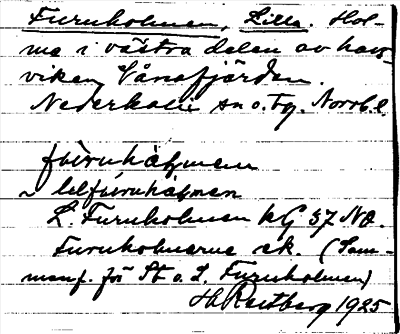 Furuholmen, Lilla. Hol-
me i västra delen av havs-
viken Vånafjärden.
Nederkalix sn o. tg. Norrb. l.
furuhåɫmen
~ lilfuruhåɫmen
L. Furuholmen kG 37 NO.
Furuholmarna ek. (Sam-
manf. för St. o. L. Furuholmen)
1925